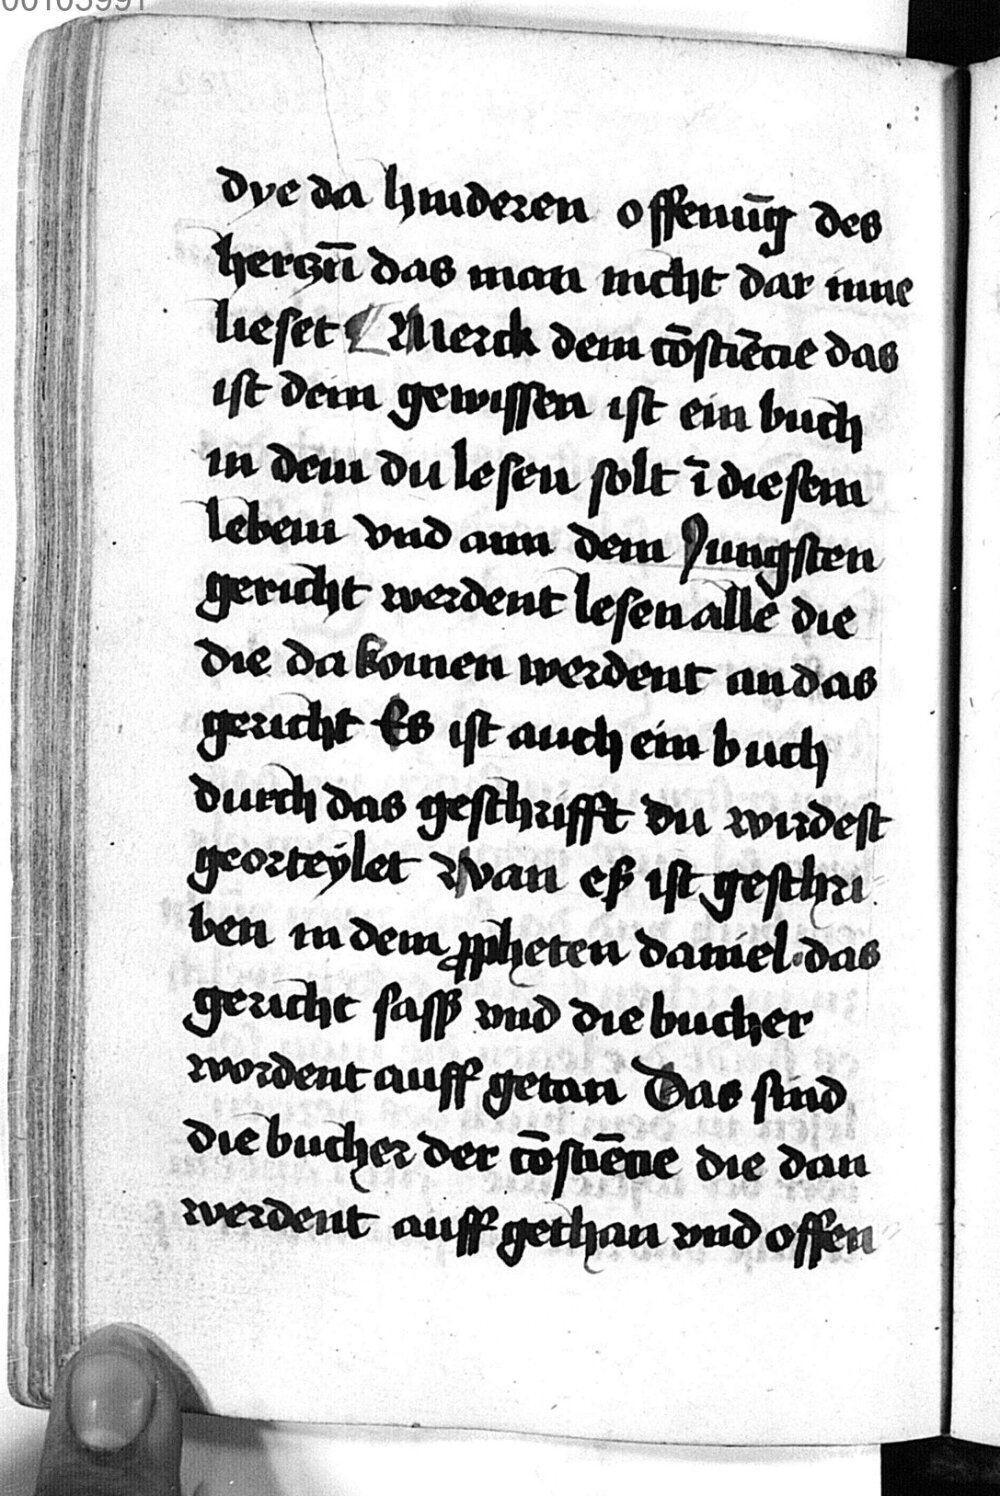 00103991
dye da hinderen offenūg des
herczū das man nicht dar inne
lieset Merck dein cōsciēcie das
ist dein gewissen ist ein buch
in dem du lesen solt ī diesem
leben vnd ann dem Jungsten
gericht werdent lesen alle die
die da komen werdent an das
gericht Es ist auch ein buch
durch das geschrifft du wirdest
georteÿlet Wan eß ist geschri
ben in dem ꝓpheten daniel·das
gericht sasß vnd die bucher
wordent auff getan Das sind
die bucher der cōsciēcie die dan
werdent auff gethan vnd offen